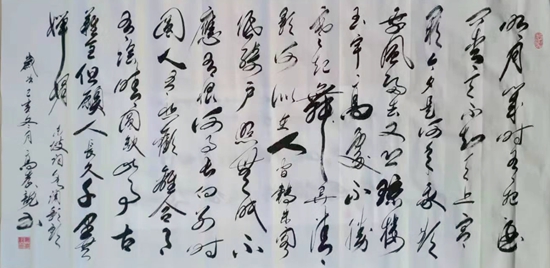 明月几时有把酒
问青天不知天上宫
阙今夕是何年我欲
乘风归去又恐琼楼
玉宇高处不胜
寒起舞弄清
影何似在人间转朱阁
低绮户照无眠不
应有恨何事长向别时
圆人有悲欢离合月
有阴晴圆缺此事古
难全但愿人长久千里共
婵娟 东坡词水调歌头